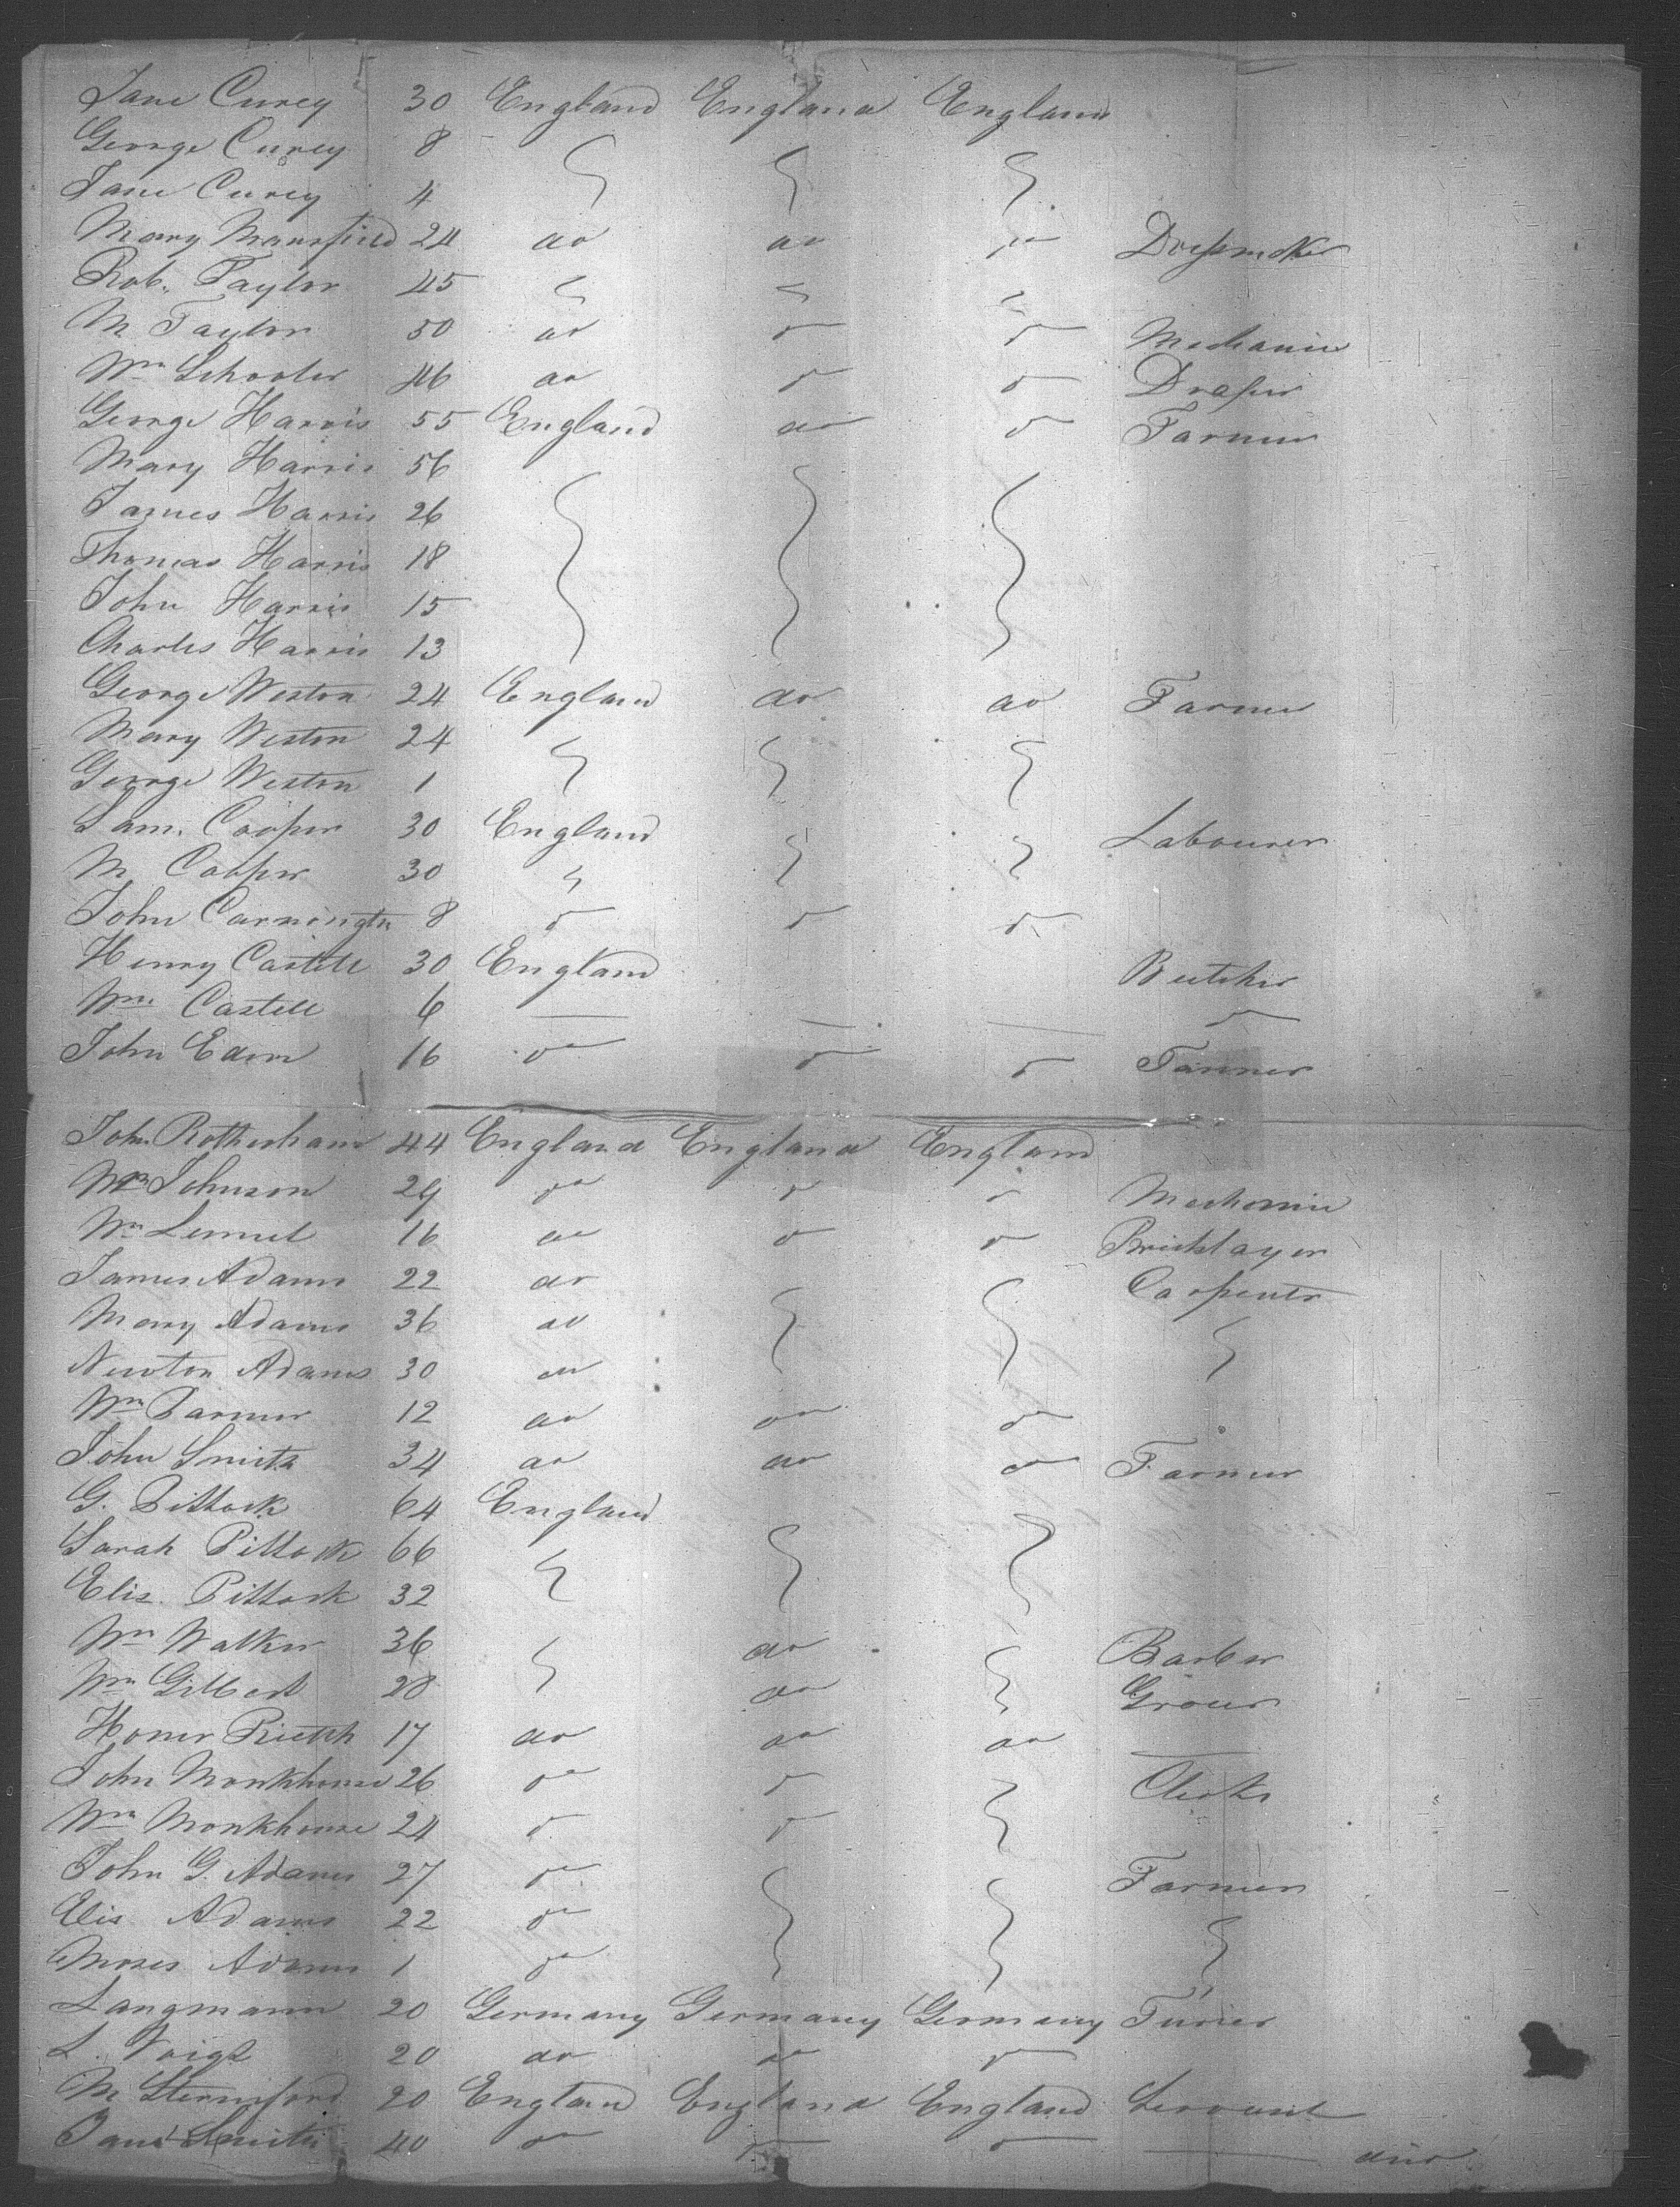 Jane Curey 30 England England England
George Curey 8
Jane Curey 4
Mary Mansfield 24 do do do Dressmaker
Rob. Taylor 45
M. Taylor 50 do do do Mechanic
Wm Schooler 46 do do do Draper
George Harris 55 England do do Farmer
Mary Harris 56
James Harris 26
Thomas Harris 18
John Harris 15
Charles Harris 13
George Weston 24 England do do Farmer
Mary Weston 24
George Weston 1
Sam. Cooper 30 England Labourer
M. Cooper 30
John Carrington 8 do do do
Henry Castell 30 England Butcher
Wm Castell 6
John Edom 16 do do do Farmer
John Rotherham 44 England England England
Wm Johnson 29 do do do Mechanic
Wm Lemuel 16 do do do Bricklayer
James Adams 22 do Carpenter
Mary Adams 36 do
Newton Adams 30 do
Wm Parmer 12 do do do
John Smith 34 do do do Farmer
G. Pittock 64 England
Sarah Pittock 66
Elis. Pittock 32
Wm Walker 36 do Barber
Wm Gilbert 28 do Grocer
Homer 17 do do do
John Monkhouse 26 do do Clerk
Wm Monkhouse 24 do do
John G. Adams 27 do Farmer
Elis Adams 22 do
Moses Adams 1 do
Langmann 20 Germany Germany Germany Furier
L. Voigt 20 do do do
M. Sternsford 20 England England England Servant
Jane Smith 40 do do do